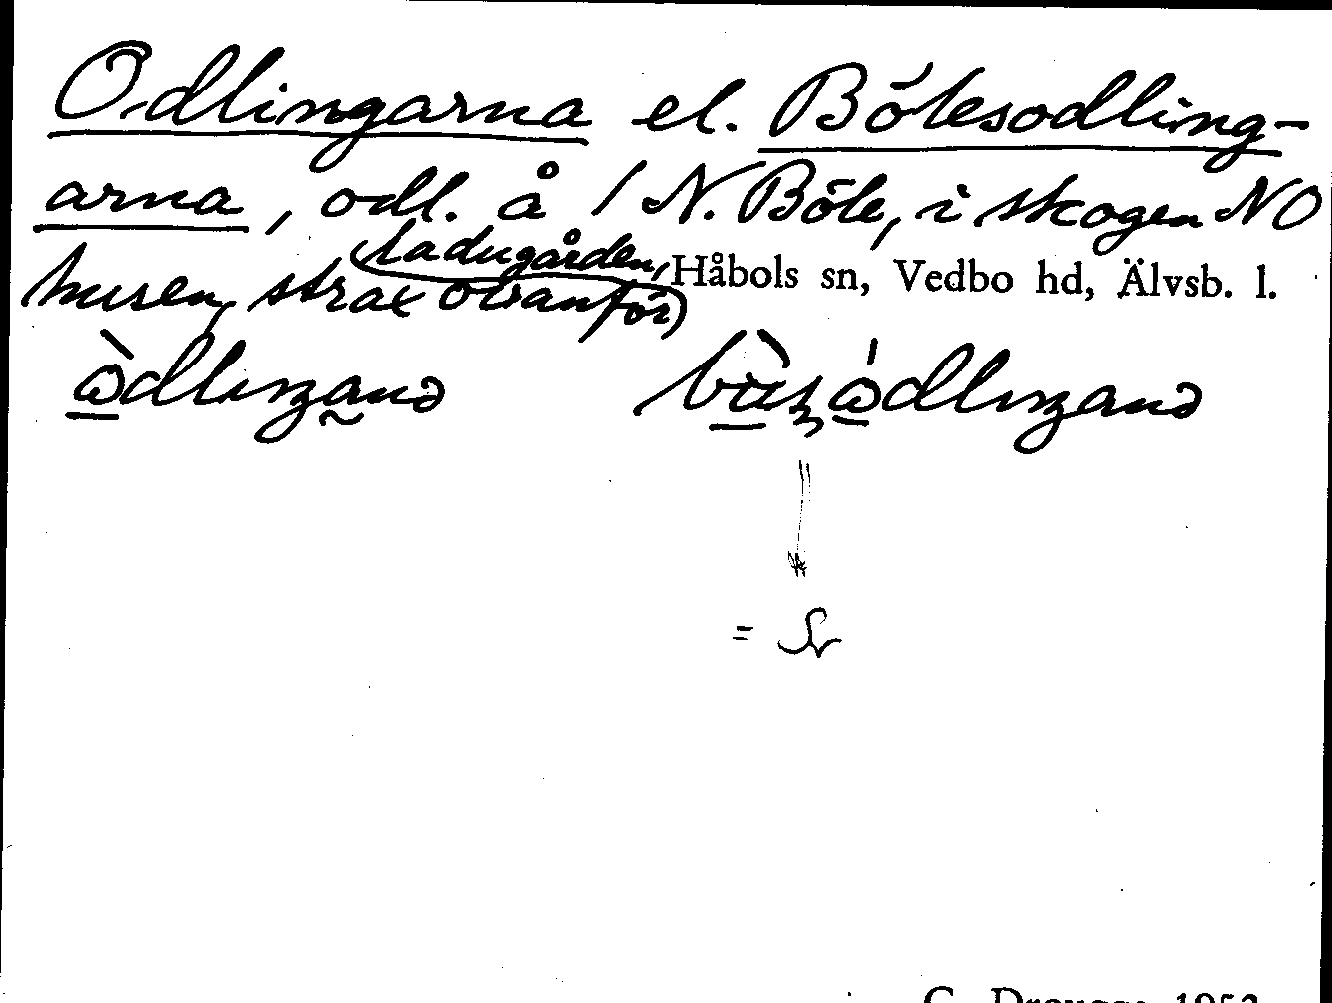 Odlingarna el. Bölesodling-
arna, odl. å 1 N. Böle, i skogen NO
husen, strax ovanför ladugården,
Håbols sn, Vedbo hd, Älvsb. l.
=
G. Drougge 1953